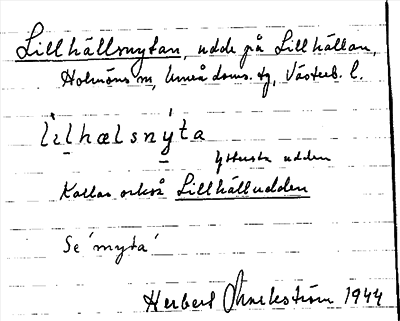 Lillhällsnytan, udde på Lillhällan,
Holmöns sn, Umeå doms. tg, Västerb. l.
lilhælsnýta
yttersta udden
Kallas också Lillhälludden
Se 'nyta'
Herbert 1944